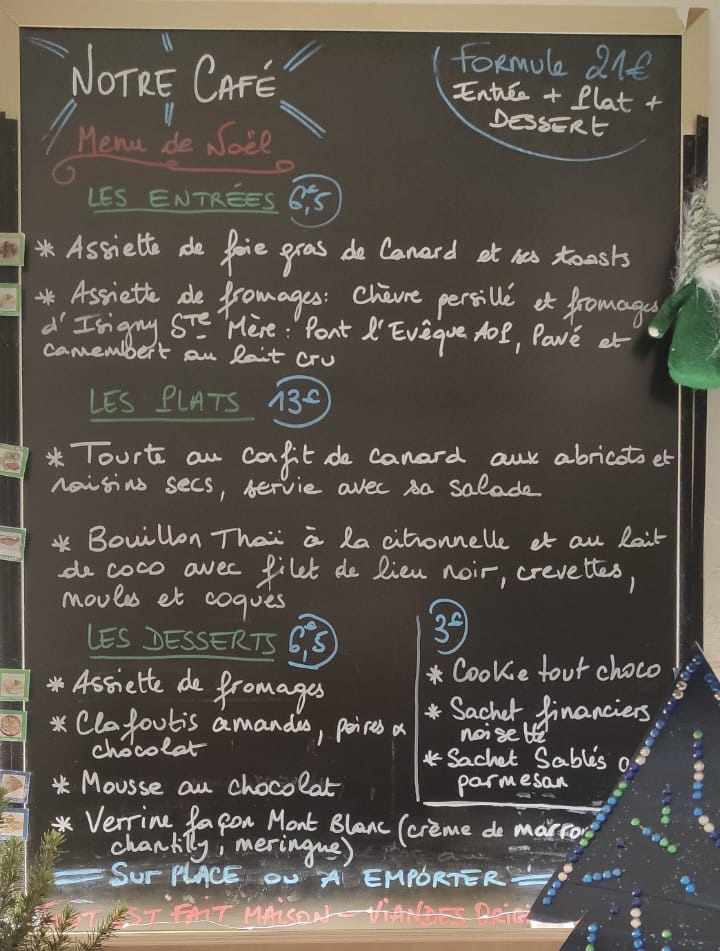 NOTRE CAFÉ
Formule 21€
Entrée + Plat +
DESSERT
Menu de Noël
LES ENTRÉES 6€,5
* Assiette de foie gras de Canard et ses toasts
* Assiette de fromages: Chèvre persillé et fromages
d'Isigny STE Mère: Pont l'Evêque AOP, Pavé et
camembert au lait cru
LES PLATS 13€
* Tourte au confit de canard aux abricots et
raisins secs, servie avec sa salade
* Bouillon Thaï à la citronnelle et au lait
de coco avec filet de lieu noir, crevettes,
moules et coques
LES DESSERTS 6€,5
* Assiette de fromages
* Clafoutis amandes, poires &
chocolat
* Mousse au chocolat
* Verrine façon Mont Blanc (crème de
chantilly, meringue)
3€
* Cookie tout choco
* Sachet financiers
noisette
* Sachet Sablés
parmesan
SUR PLACE OU A EMPORTER
EST FAIT MAISON - VIANDES